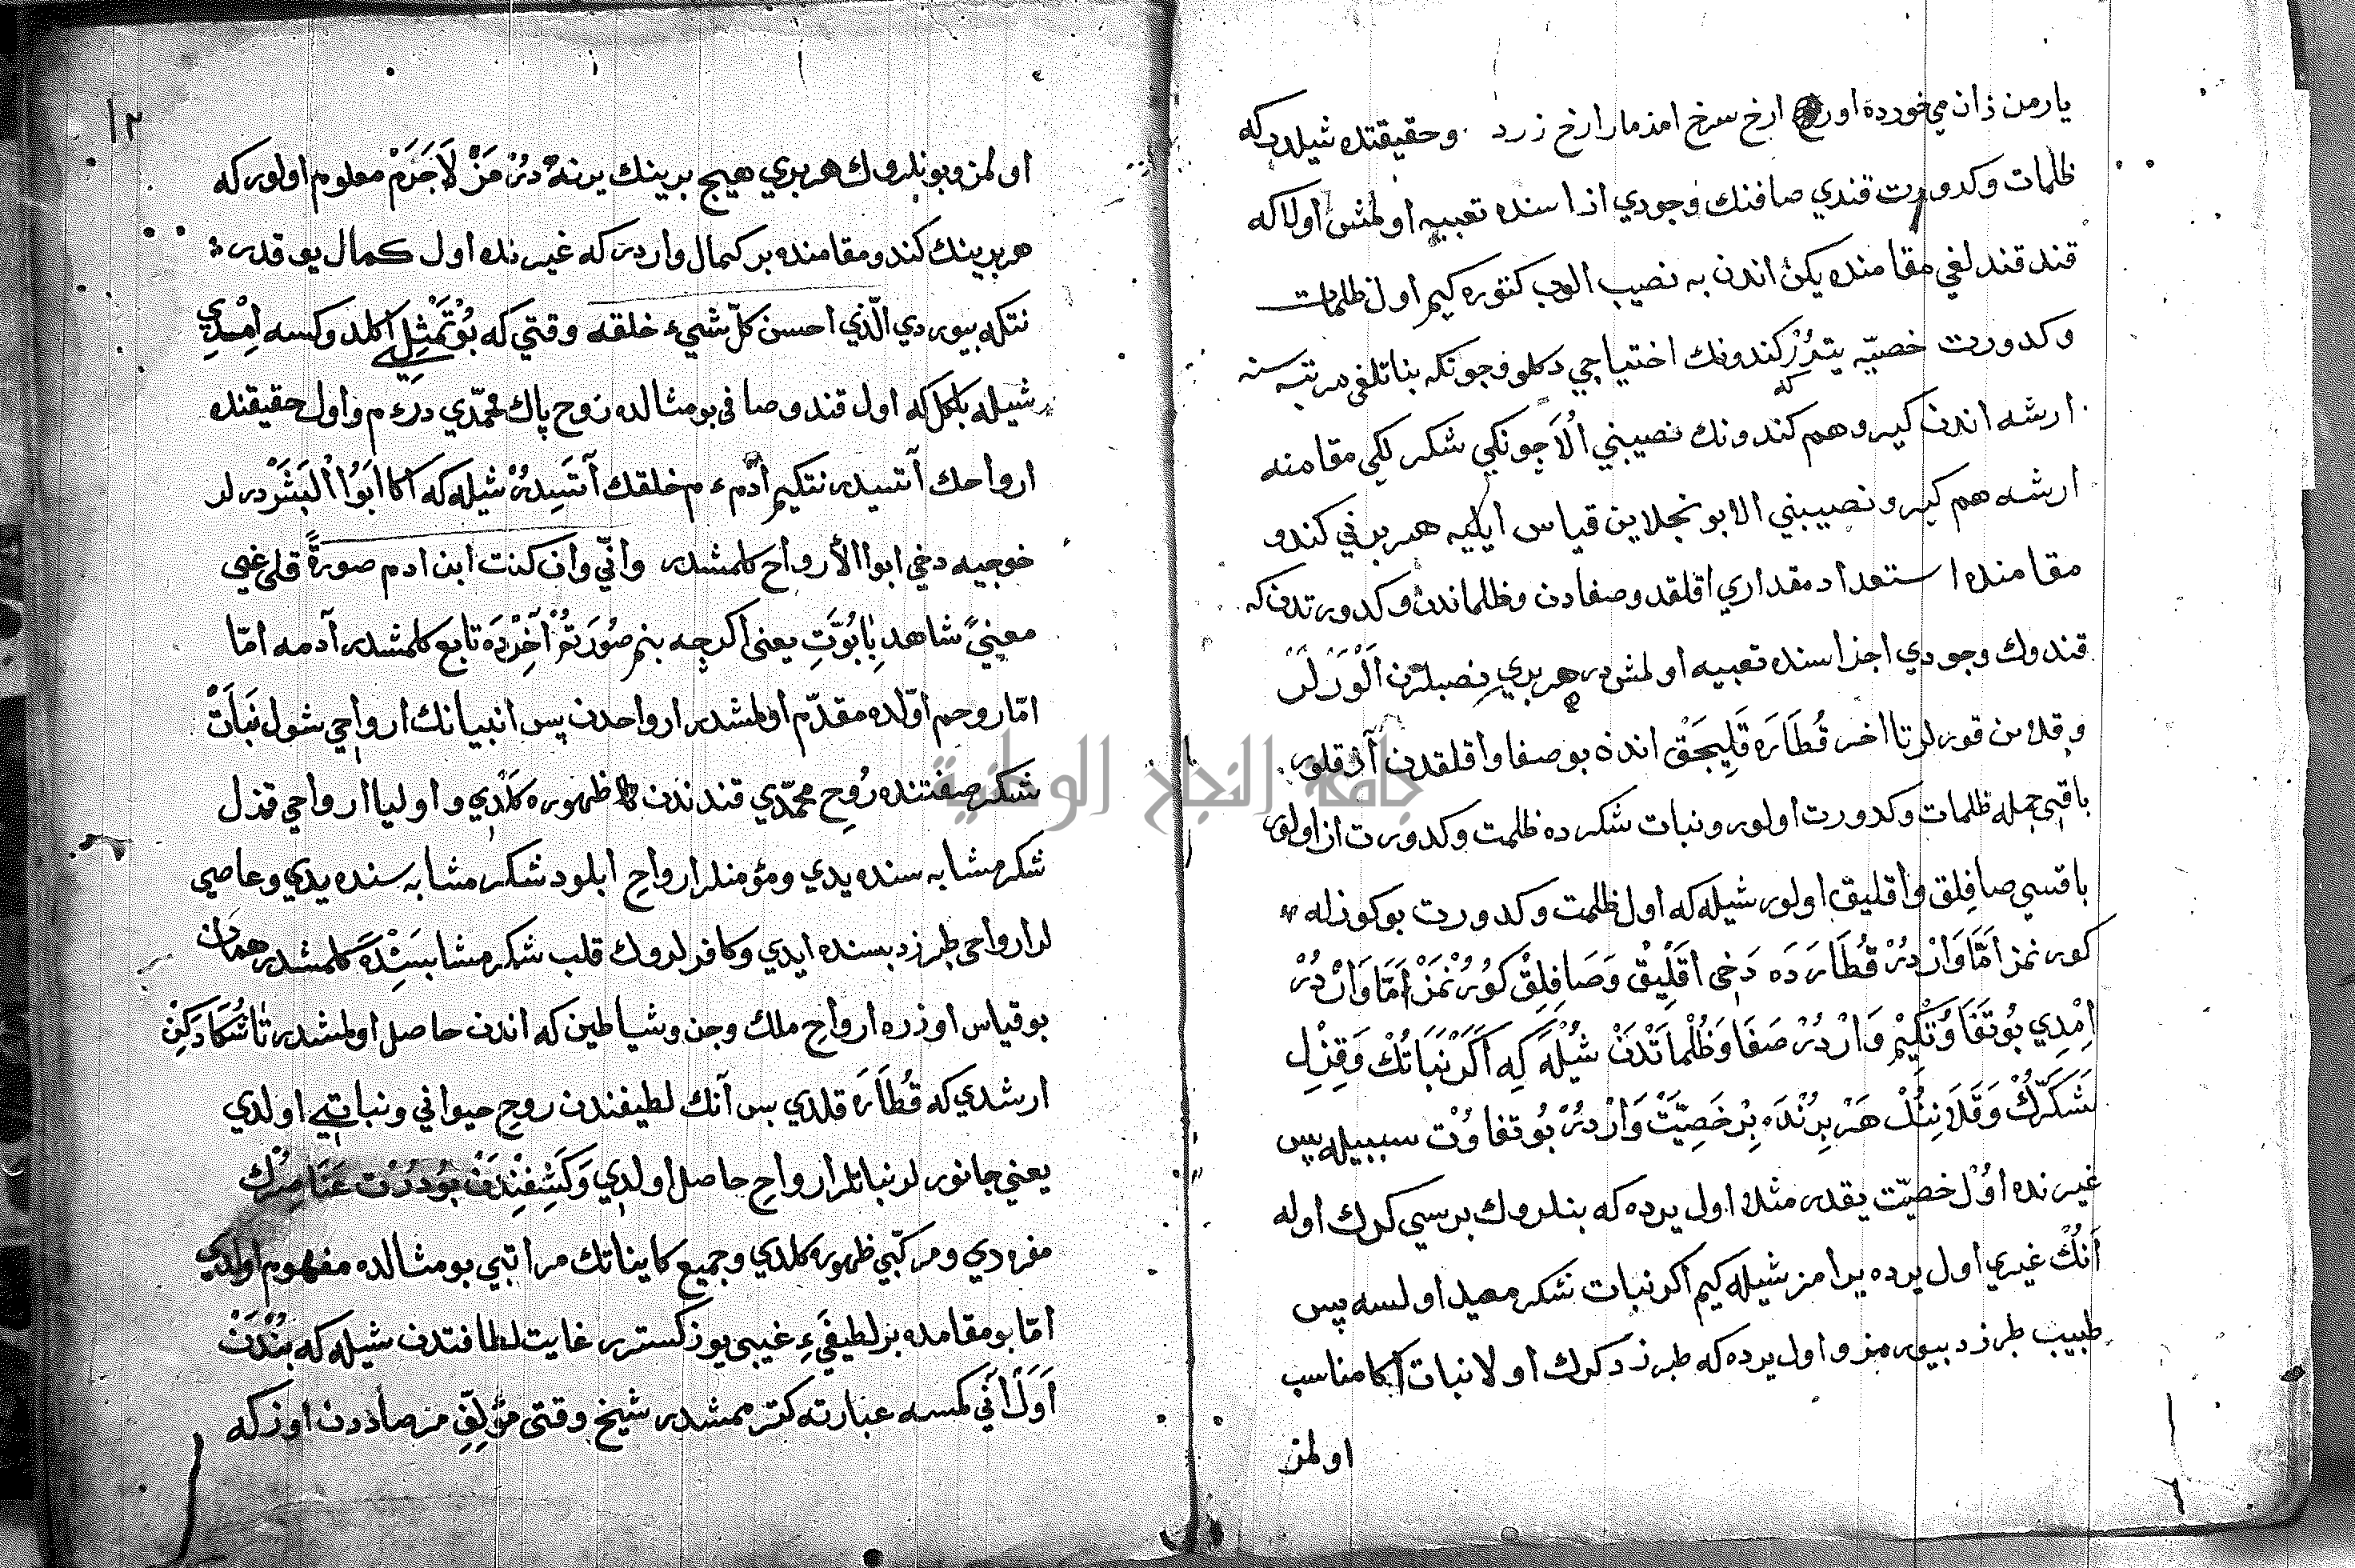 يار من ذان مي خورده اورخ ارخ سرخ امذ مارا رخ زرد وحقيقتده شيله در كه
ظلمات وكدورت قندي صافنك وجودي اذا سنده تعبيه اولمش اولا كه
قند قندلغي مقامنده يكن اندن به نصيب الوب كتوره كيم اول ظلمات
وكدورت خصيّه يتدز كه كندونك احتياجي دكلو وچونكه بناتلغى مرتبه سنه
ارشه اندن كيرو هم كندونك نصيبني الا چونكي شكرلكي مقامنه
ارشه هم كيرو نصيبني الا بو نجلاين قياس ايليه هر برني كندو
مقامنده استعداد مقداري اقلقد وصفادن وظلماتدن وكدورتدن كه
قندوك وجودي اجزا سنده تعبيه اولمشدر هر بري نصبلرن الورلر
وقلا من قورلر تا اخر قطاره قليجق انده بو صفا واقلقدن از قلور
باقيى جمله ظلمات وكدورت اولور ونبات شكرده ظلمت وكدورت از اولور
باقسي صافلق واقليق اولور شيله كه اول ظلمت وكدورت بو كوزله
كورنمز اَمَّا وَارْدُرْ قُطَارَدَه دَخِى اقلِيقْ وَصَافِلِقْ كُورُنْمَزْ اَمَّا وَارْدُرْ
اِمْدِي بُو تَفَاوُتَكِيمْ وَارْدُرْ صَفَا وَظُلْمَاتَدَنْ شُيْلَه كِه اَكَرْ نَبَاتُكْ وَقِزِلْ
شَكَرُّكْ وَقَلَانِنُكْ هَرْ بِرِنْدَه بِرْ خَصِيَّتْ وَارْدُرْ بُو تفاوُتْ سببيله پس
غيرنده اوُل خصيّت يقدر مثلا اول يرده كه بنلروك برسي كرك اوله
اَنُكْ غيري اول يرده يرامز شيله كيم اكر نبات شكر مفيد اولسه پس
طبيب طبرزد بيورمز و اول يرده كه طبرزد كرك اولا نبات اكا مناسب
اولمز
١٢
اولمز وبونلروك هر بري هيچ برينك يرنه دُرْمَزْ لَاجَرَمْ معلوم اولور كه
هر برينك كندو مقامنده بر كمال واردر كه غيرنده اول كمال يوقدر
نتكه بيوردي الّذي احسن كلّ شيء خلقه وقتي كه بُو تَمْثِلِي اكلدوكسه اِمْدِي
شيله بلكل كه اول قند وصافى بو مثالده روح پاك محمّدي در م واول حقيقتده
ارواحك آتسيدر نتكيم آدم ء م خلقك آتَسِيدُرْ شيله كه اكا اَبُوا الْبَشَرْ درلر
خوجيه دخي ابوا الأرواح كلمشدر وانّي وان كنت ابن ادم صورةً فلى فيى
معنيً شاهد بِابُوَّتِ يعنى اكرچه بنم صُورَتُمْ آخِرْدَه تابع كلمشدر آدمه امّا
امّا روحم اوّلده مقدّم اولمشدر ارواحدن پس انبيانك ارواحي شول نَبَاتْ
شكر صفتنده رُوح محمّدي قندندن ظهوره كَلْدِي واوليا ارواحي قزل
شكر مشابه سنده يدي ومؤمنلر ارواحِ ابلود شكر مشابه سنده يدي وعاصي
لر ارواحى طبرزد بسنده ايدي وكافرلروك قلب شكر مشابسَنْدَه كلمشدر همان
بو قياس اوزره ارواحِ ملك وجن وشياطين كه اندن حاصل اولمشدر تا شُكَا دَكِنْ
ارشدي كه قُطَارَه قلدي بس آنك لطيفندن روح حيواني ونباتيى اولدي
يعني جانورلر نباتلر ارواحِ حاصل اولدي وَكَشِفِنْدَنْ بُودُرْت عَنَاصِرُك
مفردي ومركّبي ظهوره كلدي وجميع كايناتك مراتبي بو مثالده مفهوم اولدي
امّا بو مقامده بر لطيفئ غيبى يوز كستر غايت لطافتدن شيله كه بُنْدَنْ
اَوَّل آني كمسه عبارته كترممشدر شيخ وقتى مؤلِّفِ مرصاددن اوزكه